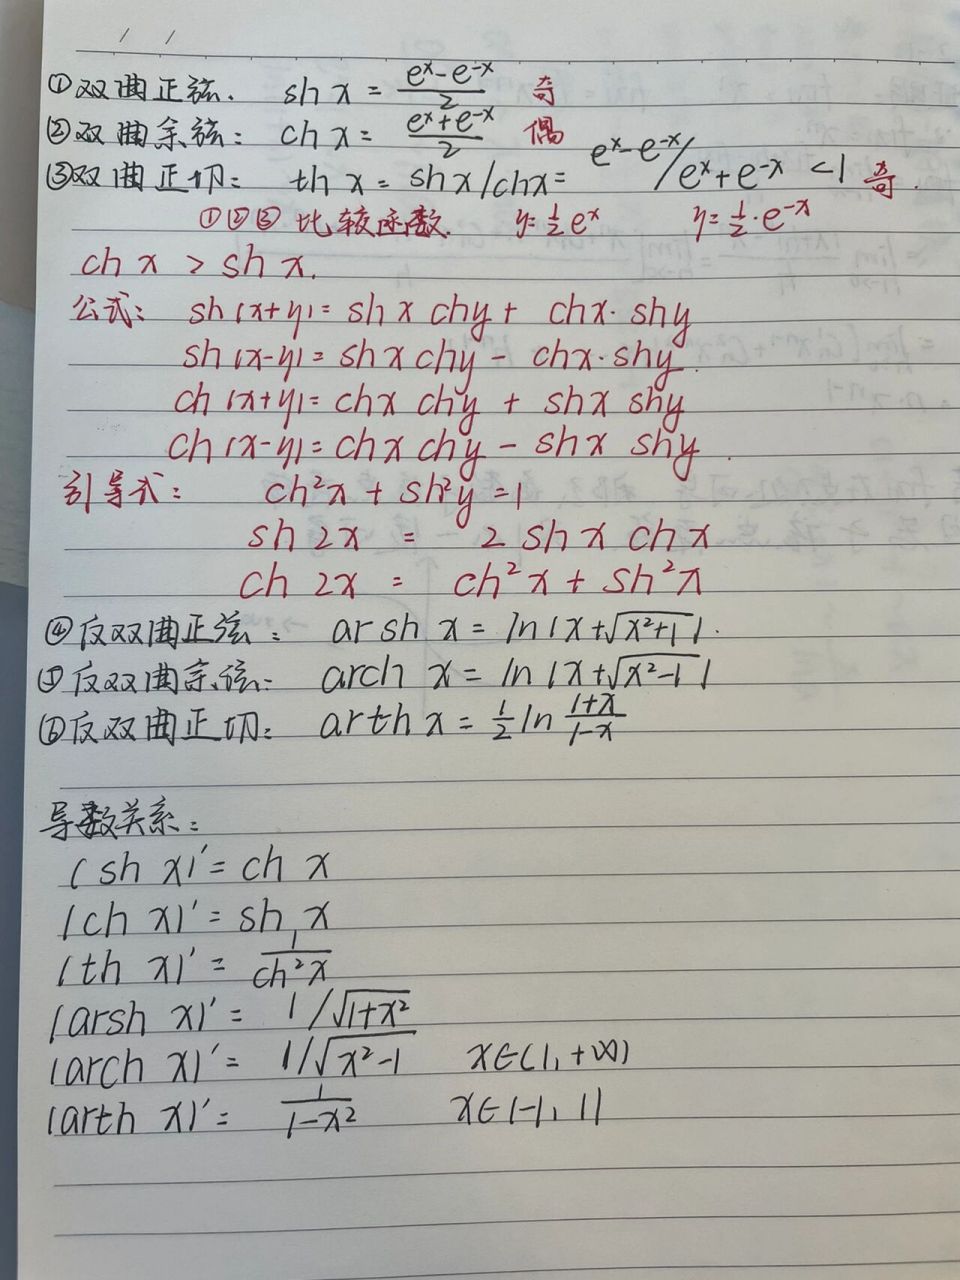 ①双曲正弦. sh x = (e^x - e^-x)/2 奇
②双曲余弦: ch x = (e^x + e^-x)/2 偶
③双曲正切: th x = sh x/ch x = e^x - e^-x / e^x + e^-x < 1 奇.
①②③ 比较函数. y = 1/2 e^x y = 1/2 · e^-x
ch x > sh x.
公式: sh(x+y) = sh x chy + chx · shy
sh(x-y) = sh x chy - chx · shy.
ch(x+y) = chx chy + shx shy
ch(x-y) = chx chy - shx shy.
引导式: ch²x + sh²y = 1
sh 2x = 2 sh x ch x
ch 2x = ch²x + sh²x
④反双曲正弦: ar sh x = ln(x+√(x²+1)).
⑤反双曲余弦: arch x = ln(x+√(x²-1))
⑥反双曲正切: arth x = 1/2 ln (1+x)/(1-x)
导数关系:
(sh x)' = ch x
(ch x)' = sh x
(th x)' = 1/ch²x
(arsh x)' = 1/√(1+x²)
(arch x)' = 1/√(x²-1) x∈(1, +∞)
(arth x)' = 1/(1-x²) x∈(-1, 1)